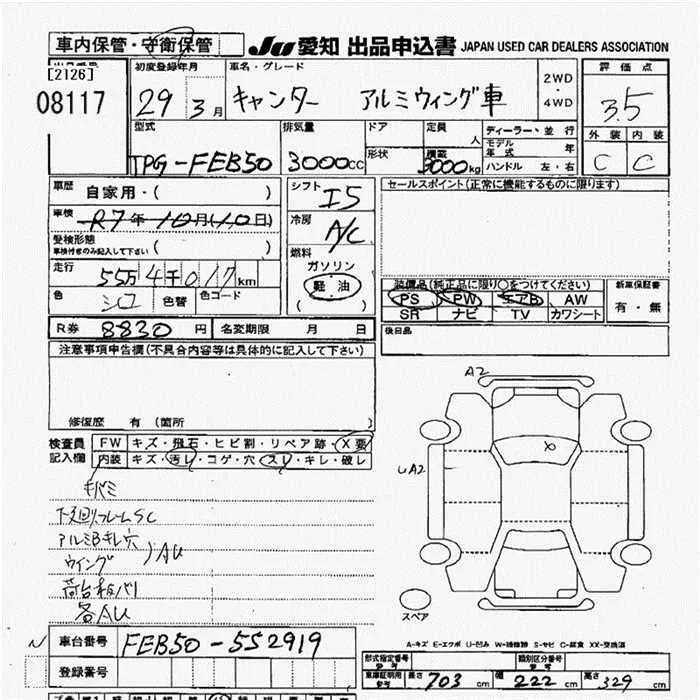 車内保管・守衛保管
Ju 愛知 出品申込書 JAPAN USED CAR DEALERS ASSOCIATION
[2126]
08117
初度登録年月
29 3月
車名・グレード
キャンター アルミウィング車
2WD
・
4WD
評価点
3.5
外装 内装
C C
型式
TPG-FEB50
排気量
3000cc
ドア
形状
定員
人
積載
3000kg
ディーラー・並行
モデル
年式 年
ハンドル 左・右
車歴
自家用・( )
車検
R7年10月(10日)
受検形態
車検付きのみ記入して下さい ( )
走行
55万4千017km
色
シロ
色替
色コード
シフト
I5
冷房
A/C
燃料
ガソリン
軽油
( )
セールスポイント(正常に機能するものに限ります)
装備品(純正品に限り○をつけてください)
PS PW エアB AW
SR ナビ TV カワシート
新車保証書
有・無
後日品
R券 8830円 名変期限 月 日
注意事項申告欄(不具合内容等は具体的に記入して下さい)
修復歴 有(箇所 )
検査員
記入欄
FW キズ・飛石・ヒビ割・リペア跡・X要
内装 キズ・汚レ・コゲ・穴・スレ・キレ・破レ
キバミ
下廻リフレームSC
アルミBキレ穴
ウイング
)AU
荷台板バリ
各AU
A2
X
UA2
スペア
A-キズ E-エクボ U-凹み W-補修跡 S-サビ C-腐食 XX-交換済
車台番号 FEB50-552919
登録番号
型式指定番号
参考
類別区分番号
参考
車庫証明用
参考
長さ 703cm 幅 222cm 高さ 329cm